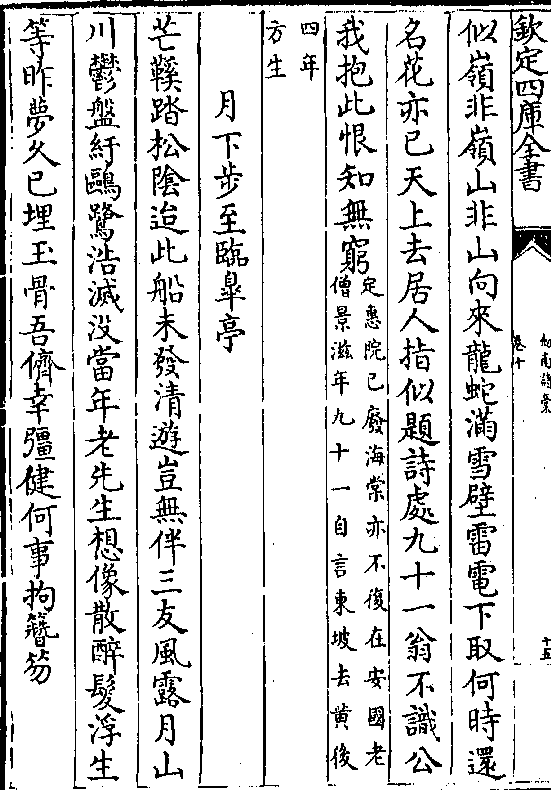 欽定四庫全書
卷十
似嶺非嶺山非山向來龍蛇滿雪壁雷電下取何時還
名花亦已天上去居人指似題詩處九十一翁不識公
我抱此恨知無窮定惠院已廢海棠亦不復在安國老
僧景滋年九十一自言東坡去黄後
四年
方生
月下步至臨臯亭
芒鞵踏松陰迨此船未發清遊豈無伴三友風露月山
川鬱盤紆鷗鷺浩滅没當年老先生想像散醉髮浮生
等昨夢久已埋玉骨吾儕幸彊健何事拘簪笏